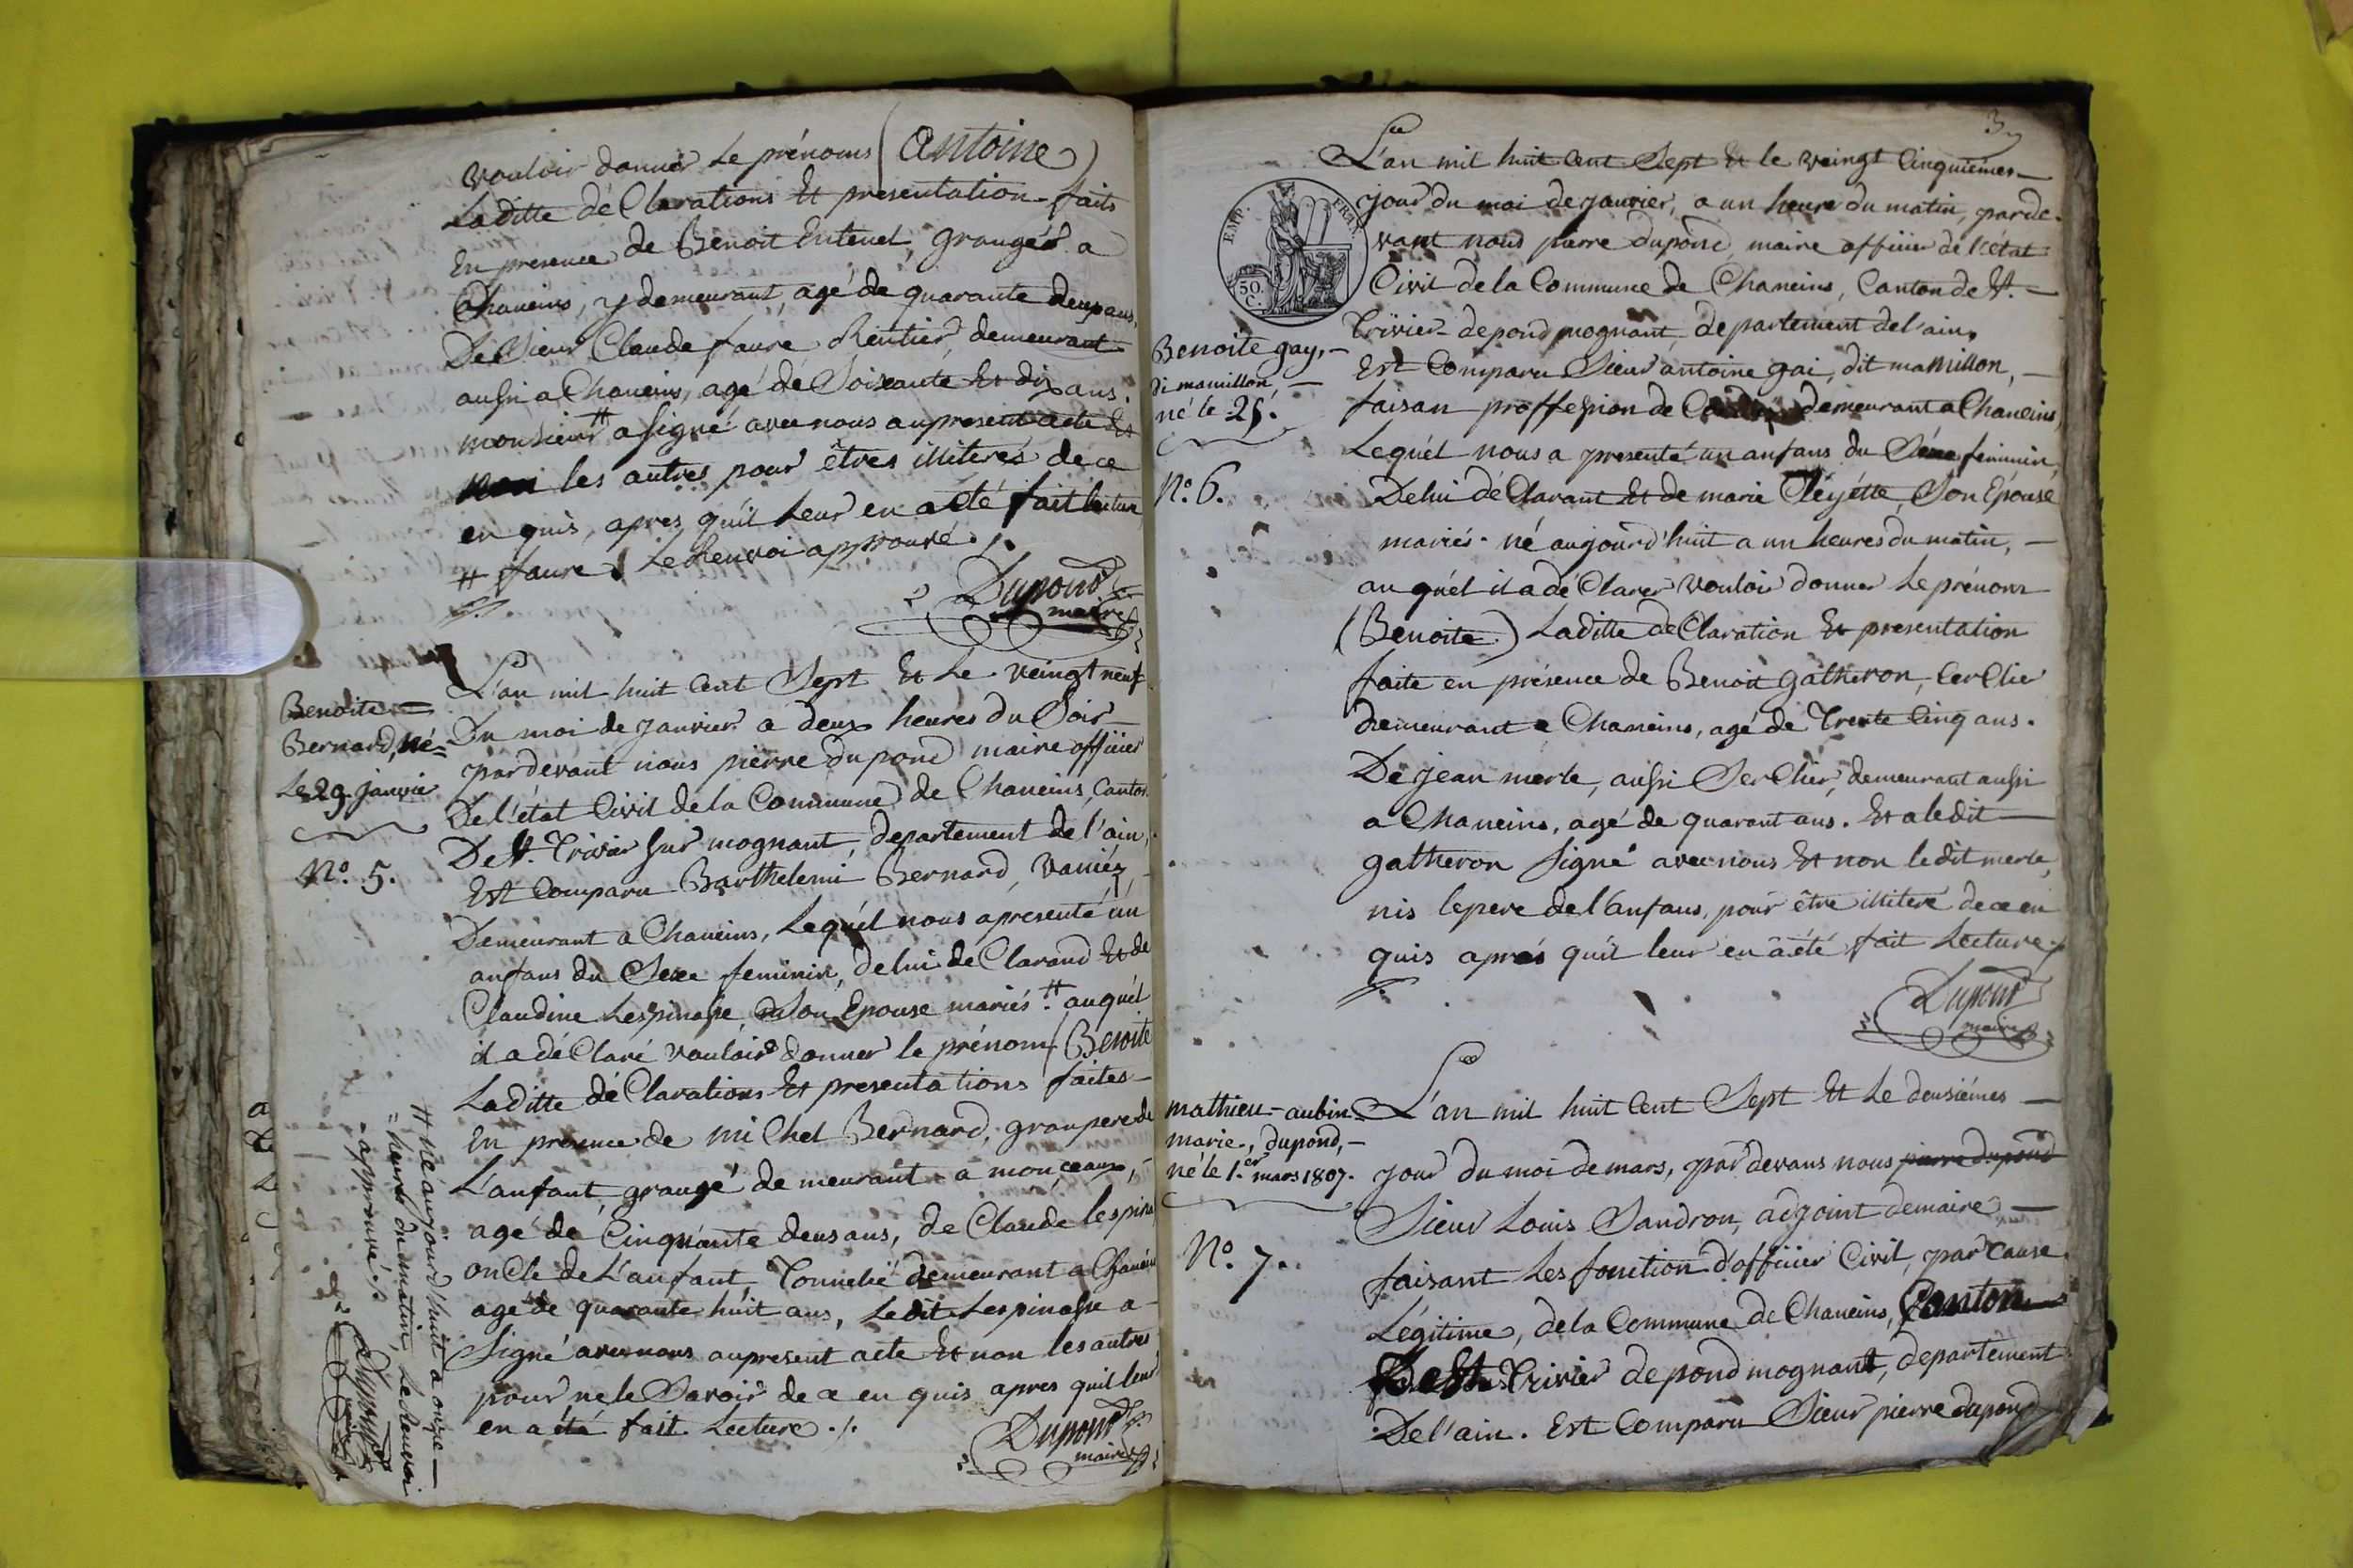 vouloir donner Le prénoms (Antoine)
Laditte déClarations Et presentation faits
En presence de Benoit Entenet, grangér a
Chaneins, y demeurant, agé de quarante deux ans,
De Sieur Claude faure Rentier, demeurant
aussi a Chaneins, agé de Soixante Et dix ans.
monsieur # a signé avec nous au present acte Et
non les autres pour êtres illiterés de ce
en quis, apres qu'il leur en a été fait lecture
# faure. Le Renvoi approuvé ./.
Dupond
maire
Benoite
Bernard, né
Le 29 janvié
N.º 5.
L'an mil huit Cent Sept Et Le veingt neuf
Du moi de janvier a deux heures du Soir
pardevant nous pierre Dupond maire officier
De l'état Civil de la Commune de Chaneins, Canton
De St. Trivier sur mognant, departement de l'ain,
Est Comparu Barthelemi Bernard,
Demeurant a Chaneins, Lequél nous a presenté un
anfans du Sexe feminin, de lui deClarand Et de
Claudine Lespinasse, Son Epouse mariés # auquél
il a déClaré vouloir donner le prénom (Benoite
Laditte déClarations Et presentations faites
En presence de miChel Bernard, granpere de
L'anfant, grangé demeurant a monceaux,
agé de Cinquante deus ans, de Claude lespina
onCle de L'anfant, Tonnelié demeurant a Chanein
agé de quarante huit ans, Ledit Lespinasse a
Signé avec nous au present acte Et non les autres
pour ne le Savoir de ce en quis apres quil leur
en a été fait Lecture ./.
Dupond
maire
# né aujourd'huit a onze
= heures du matin, Le Renvoi
= approuvé ./.
Dupond
maire
3
L'an mil huit Cent Sept Et le veingt Cinquiémes
jour du moi de janvier, a un heure du matin, parde-
vant nous pierre dupond, maire officier de l'état
Civil de la Commune de Chaneins, Canton de St.
Trivier de pond mognant, departement de l'ain,
EMP. FRAN.
50. C.
Benoite gay,
di mamillon,
né le 25.
N.º 6.
Est Comparu Sieur antoine gai, dit mamillon,
faisan proffession de demeurant a Chaneins,
Lequél nous a presenté un anfans du Séxe feminin,
De lui déClarant Et de marie Téyétte, Son Epouse
mariés. né aujourd'huit a un heures du matin,
auquél il a déClarer vouloir donner Le prénom
(Benoite) Laditte deClaration Et presentation
faite en présence de Benoit gatheron, CerClier
demeurant a Chaneins, agé de Trente Cinq ans.
De jean merle, aussi SerClier, demeurant aussi
a Chaneins, agé de quarant ans. Et a ledit
gatheron signé avec nous Et non le dit merle,
nis le pere de l'anfans, pour être illiteré de ce en
quis aprés qu'il leur en a été fait Lecture ./.
Dupond
maire
mathieu-aubin
marie, dupond,
né le 1.er mars 1807.
N.º 7.
L'an mil huit Cent Sept Et Le deusiémes
jour du moi de mars, par devans nous pierre dupond
Sieur Louis Sandron, adjoint de maire
faisant Les fonction d'officier Civil, par Cause
Légitime, de la Commune de Chaneins, Canton
De St. Trivier de pond mognant, departement
De l'ain. Est Comparu Sieur pierre dupond